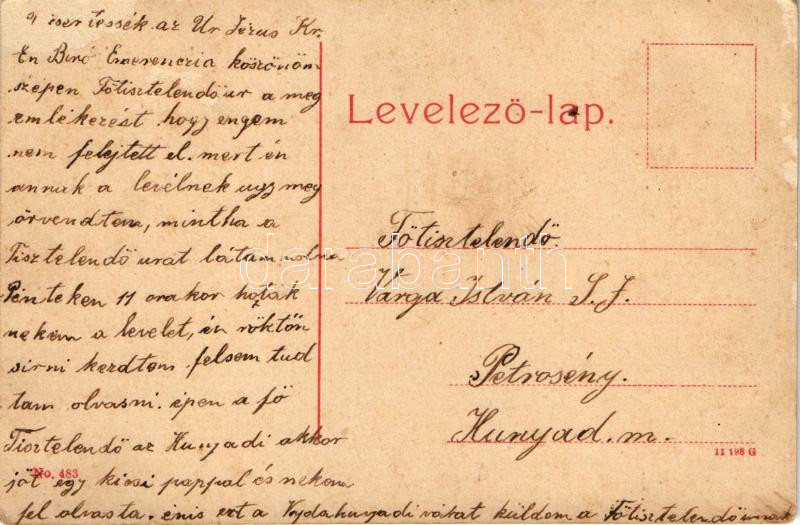 Dicsertessék az Ur Jézus Kr.
En Biró Emerenczia köszönöm
szépen Főtisztelendő ur a meg
emlékezést hogy engem
nem felejtett el. mert én
annak a levélnek ugy meg
örvendtem, mintha a
Tisztelendő urat látam volna
Pénteken 11 orakor hozták
nekem a levelet, én röktön
sirni kezdtem felsem tud
tam olvasni. épen a fő
Tisztelendő az Hunyadi akkor
jöt egy kicsi pappal és nekem
fel olvasta. énis ezt a Vajdahunyadi várat küldöm a Főtisztelendő urnak
Levelező-lap.
Fötisztelendő.
Varga István S. J.
Petrosény.
Hunyad. m.
11 198 G
No. 483
darabanth